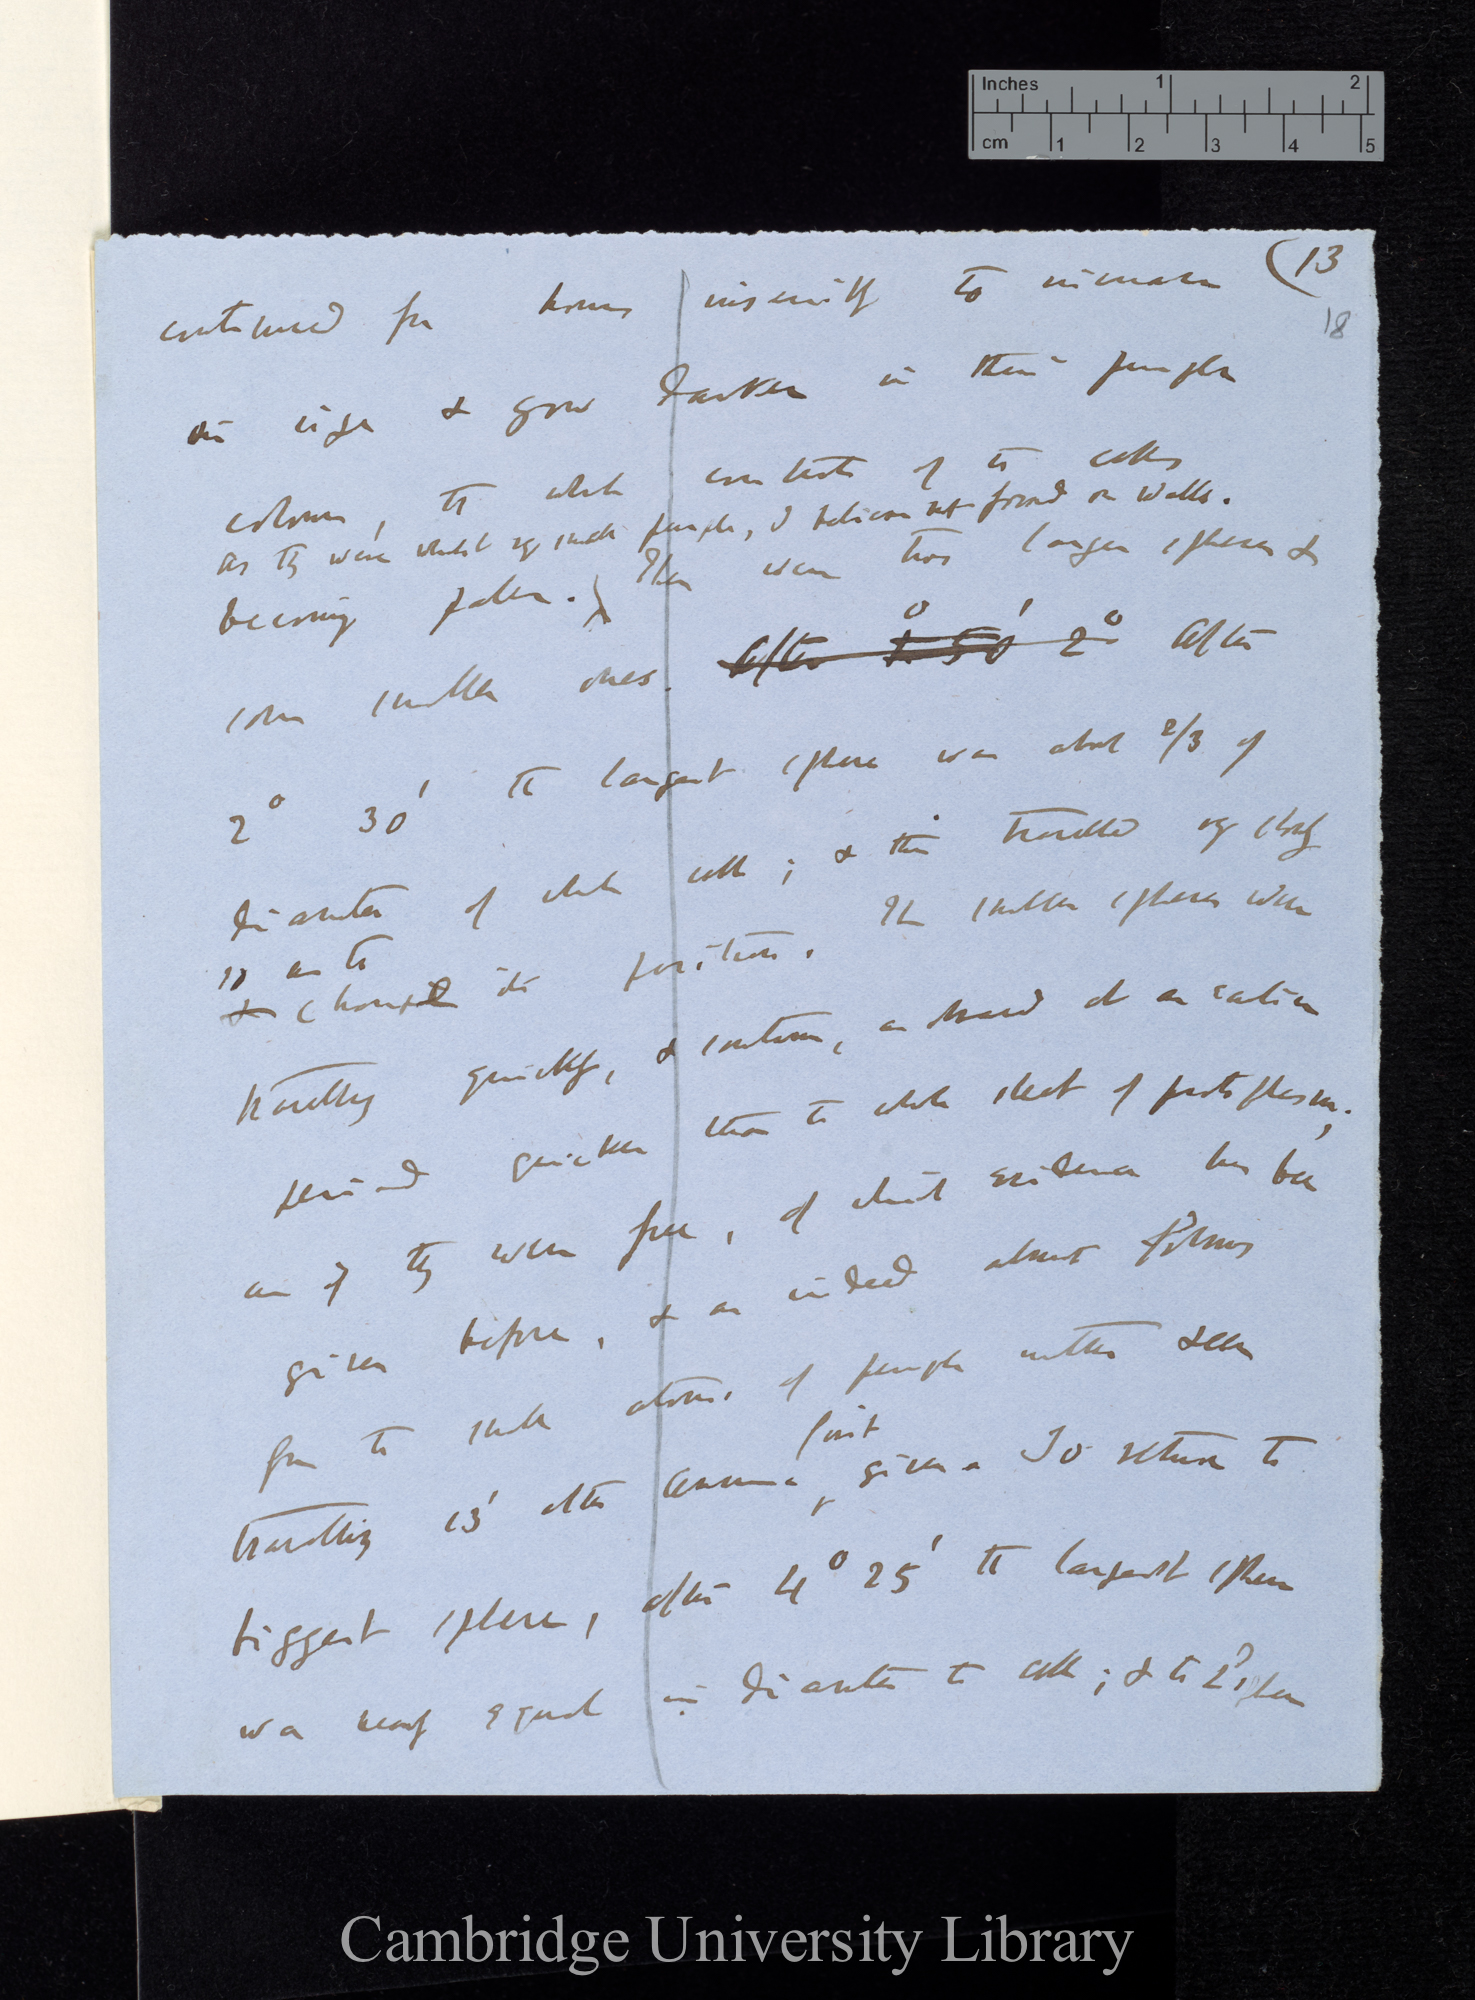 Inches 1 2
cm 1 2 3 4 5
(13
18
continued for hours insensibly to increase
in size & grow darker in their purple
colour, the whole contents of the cells
as they were whilst very small purple, I believe not found on walls.
becoming paler. There were two larger spheres &
some smaller ones. After 1° 50' 2° After
2° 30' the largest sphere was about 2/3 of
diameter of whole cell; & this travelled very slowly
as to
& changed its position. The smaller spheres were
travelling quickly, & continue, as observed at an earlier
period quicker than the whole sheet of protoplasm,
as if they were free, of which evidence has been
given before, & as indeed almost follows
from the small atoms of purple matter seen
travelling 13' after ammonia first given. To return to
biggest sphere, after 4° 25' the largest sphere
was nearly equal in diameter to cell; & the 2d sphere
Cambridge University Library